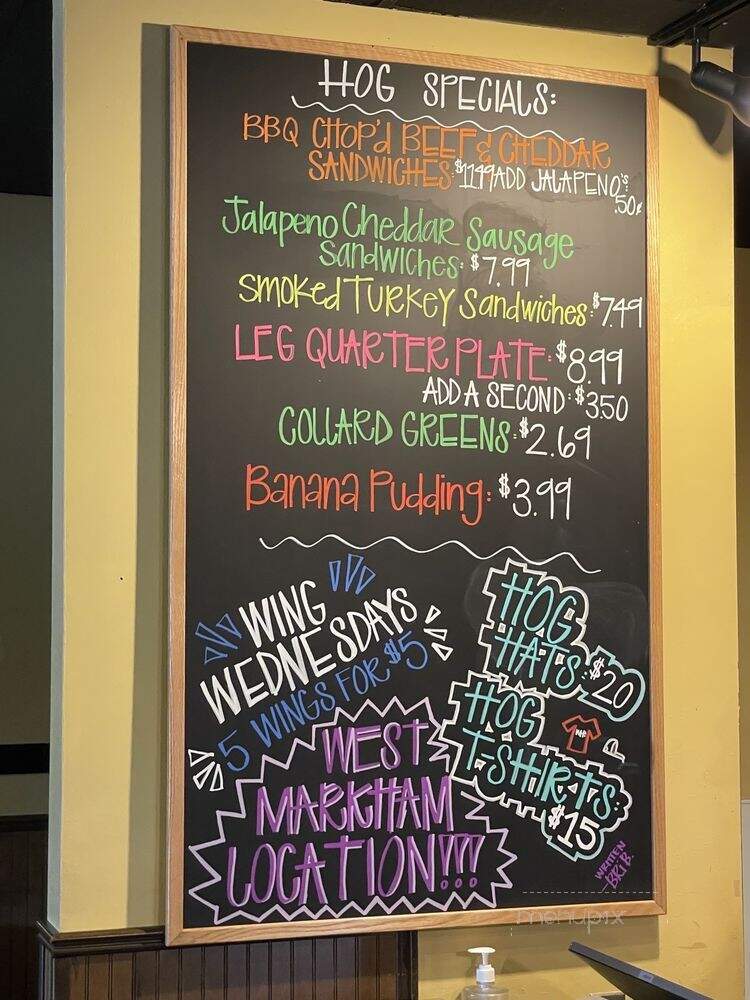 HOG SPECIALS:
BBQ CHOP'd BEEF & CHEDDAR
SANDWICHES: $11.49 ADD JALAPENO'S:
.50¢
Jalapeno Cheddar Sausage
Sandwiches: $7.99
Smoked Turkey Sandwiches: $7.49
LEG QUARTER PLATE: $8.99
ADD A SECOND: $3.50
COLLARD GREENS: $2.69
Banana Pudding: $3.99
WING
WEDNESDAYS
5 WINGS FOR $5
HOG
HATS: $20
HOG
T-SHIRTS:
$15
WEST
MARKHAM
LOCATION!!!
WRITTEN
BRI B.
menupix